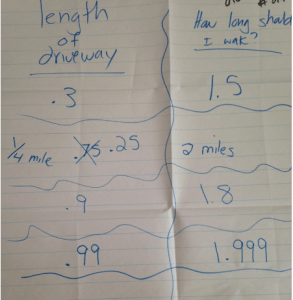 length
of
driveway
How long should
I wak?
.3
1.5
1/4 mile .75 .25
2 miles
.9
1.8
.99
1.999